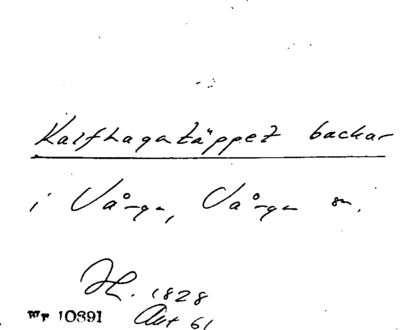 Kalfhagatäppet backar
i Vånga, Vånga sn.
H. 1828
10891 Akt 61